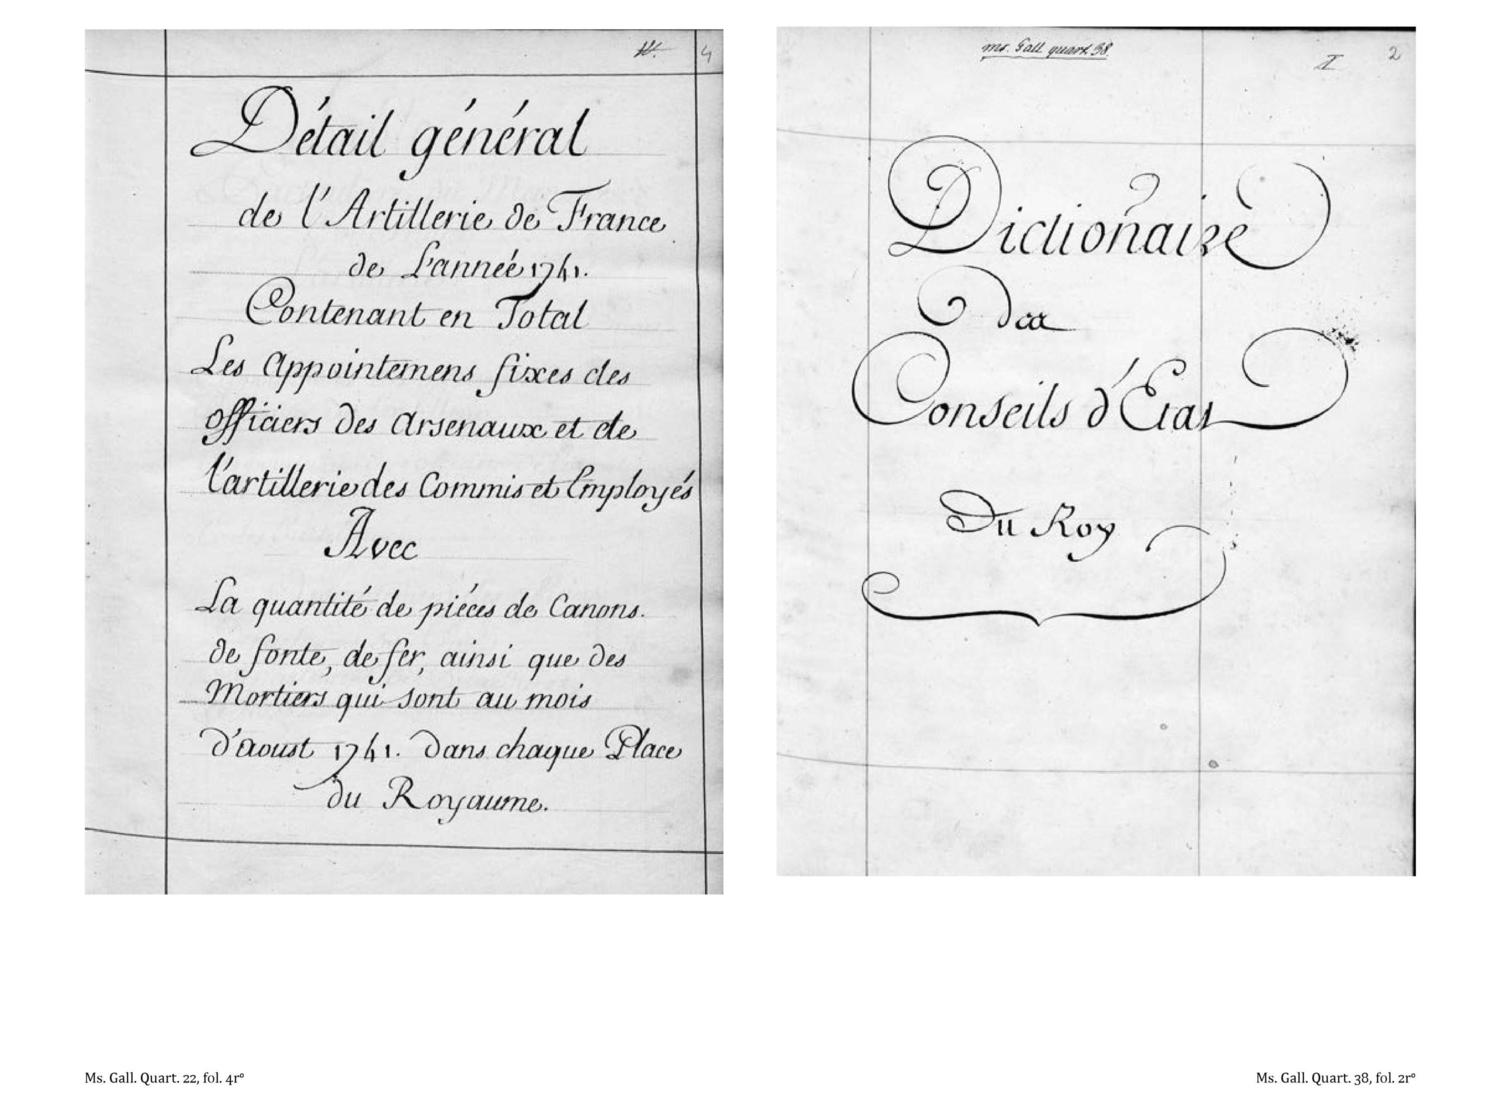 4
Détail général
de l'Artillerie de France
de L'anneé 1741.
Contenant en Total
Les Appointemens fixes des
officiers des Arsenaux et de
l'artillerie des Commis et Employés
Avec
La quantité de piéces de Canons.
de fonte, de fer, ainsi que des
Mortiers qui sont au mois
d'Aoust 1741. dans chaque Place
du Royaume.
ms. Gall. quart. 38.
I 2
Dictionaire
Des
Conseils d'Etat
Du Roy
Ms. Gall. Quart. 22, fol. 4r°
Ms. Gall. Quart. 38, fol. 2r°